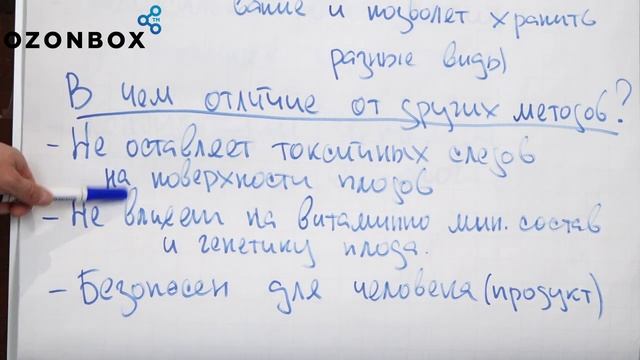 OZONBOX TM
вание и позволет хранить
разные виды)
В чем отличие от других методов?
- Не оставляет токсичных следов
на поверхности плодов
- Не влияет на витаминно мин. состав
и генетику плода.
- Безопасен для человека (продукт)